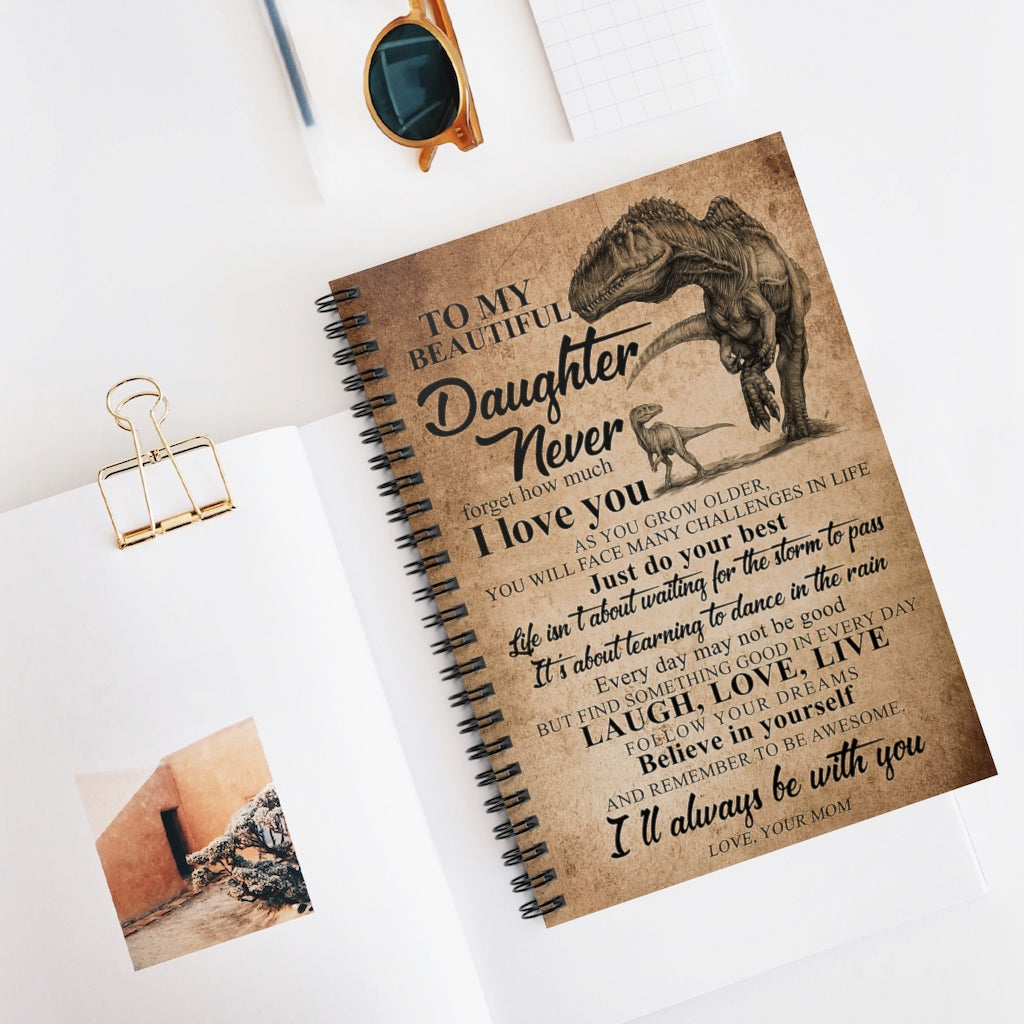 TO MY
BEAUTIFUL
Daughter
Never
forget how much
I love you
AS YOU GROW OLDER,
YOU WILL FACE MANY CHALLENGES IN LIFE
Just do your best
Life isn't about waiting for the storm to pass
It's about learning to dance in the rain
Every day may not be good
BUT FIND SOMETHING GOOD IN EVERY DAY
LAUGH, LOVE, LIVE
FOLLOW YOUR DREAMS
Believe in yourself
AND REMEMBER TO BE AWESOME.
I'll always be with you
LOVE, YOUR MOM